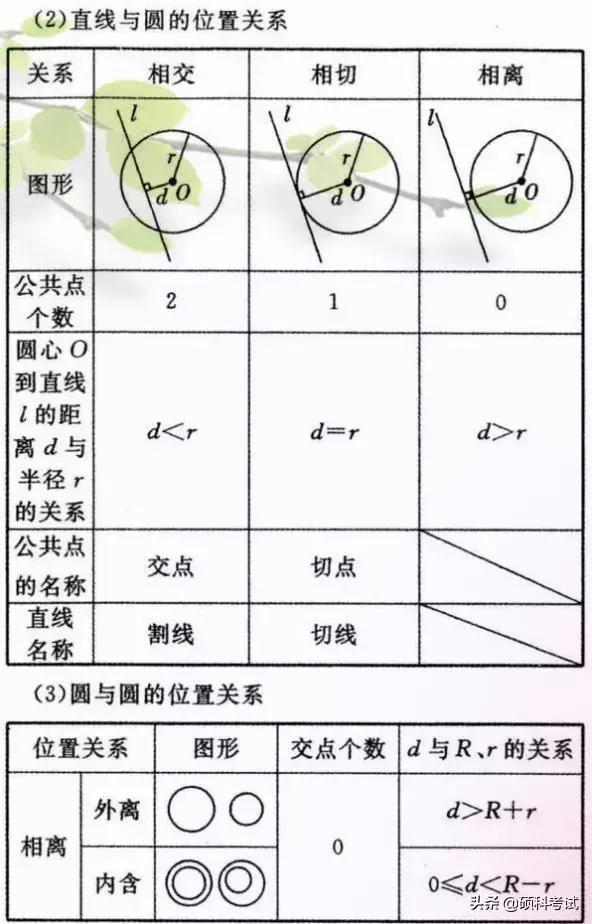 (2)直线与圆的位置关系
关系 相交 相切 相离
图形
l r d O
l r d O
l r d O
公共点
个数
2 1 0
圆心O
到直线
l的距
离d与
半径r
的关系
d<r d=r d>r
公共点
的名称
交点 切点
直线
名称
割线 切线
(3)圆与圆的位置关系
位置关系 图形 交点个数 d与R、r的关系
相离
外离
d>R+r
0
内含
0≤d<R-r
头条@硕科考试